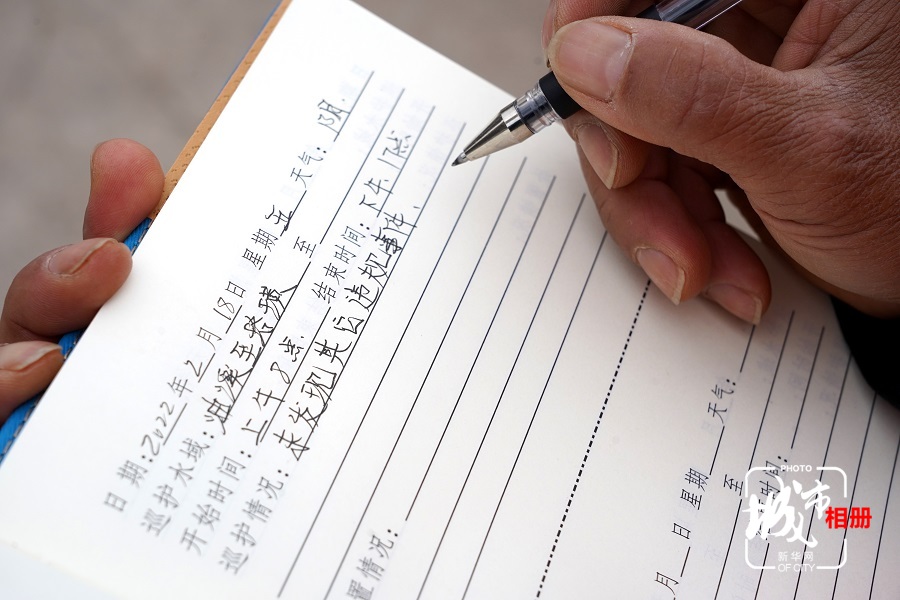 日期:2022年2月18日 星期五 天气:阴
巡护水域:油溪至珞璜 至
开始时间:上午8点 结束时间:下午1点
巡护情况:未发现其它违规事件.
置情况:
月 日 星期 天气:
至
时间:
PHOTO
城市
相册
新华网
OF CITY